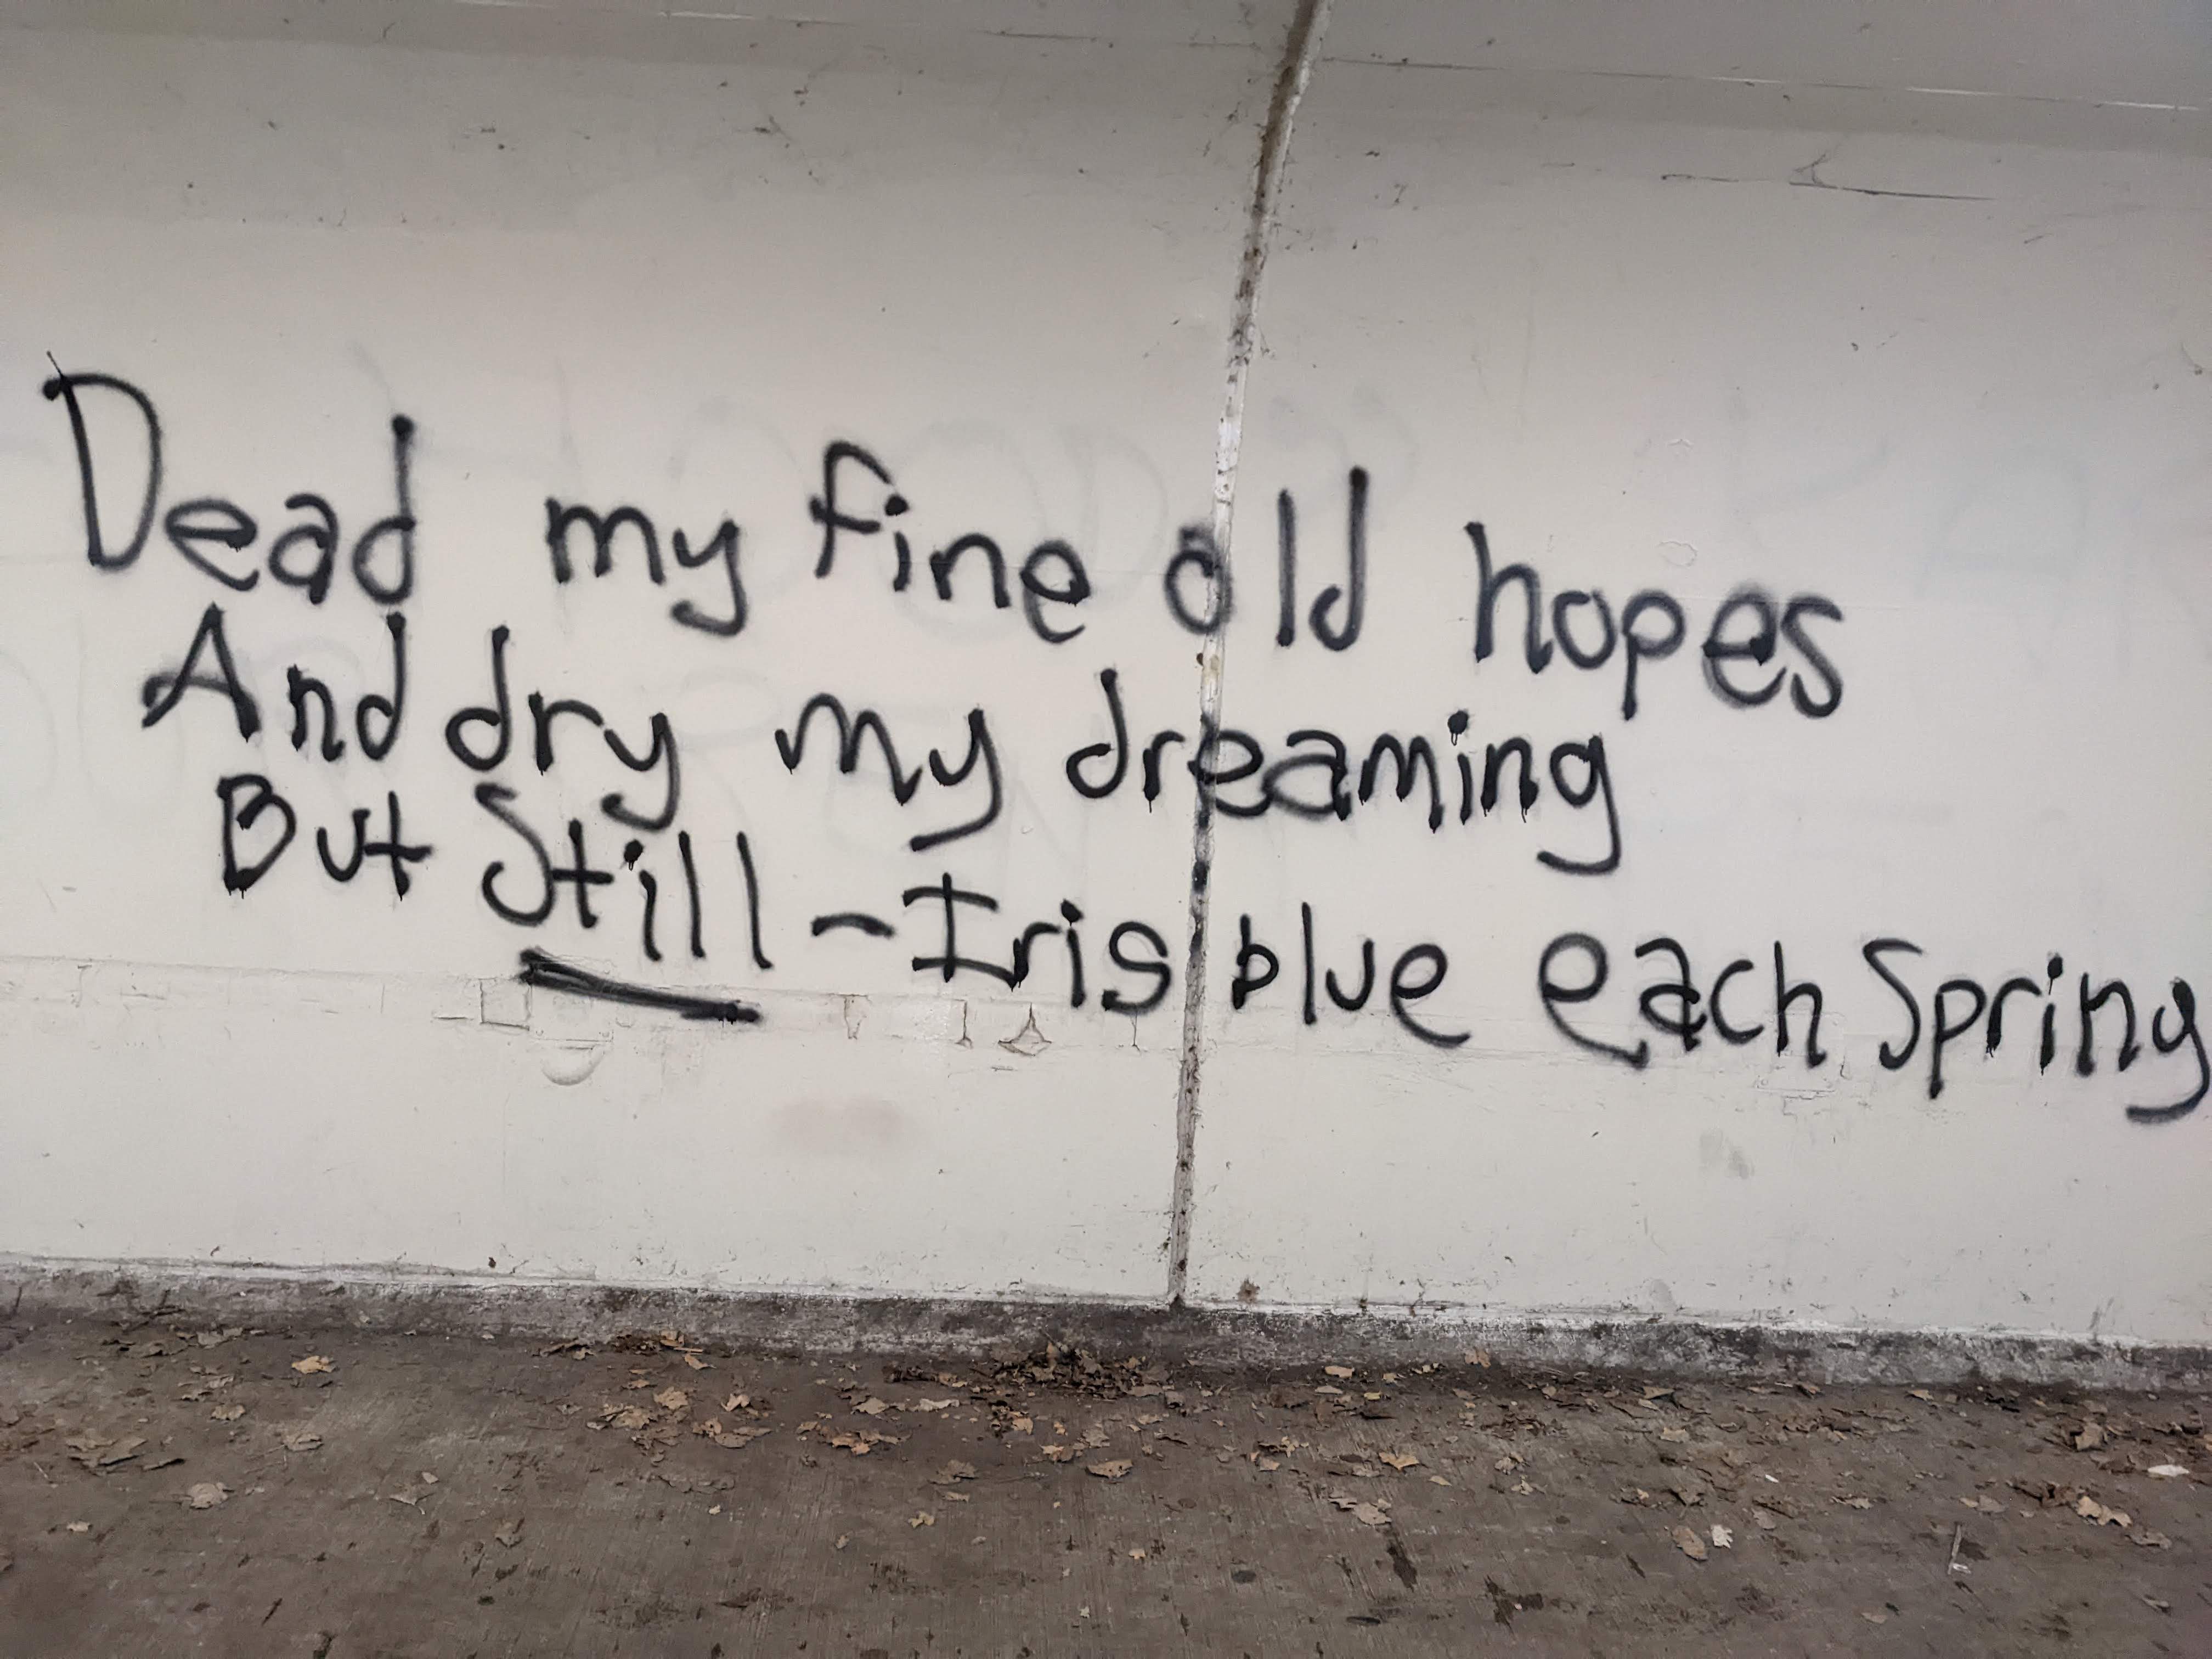 Dead my fine old hopes
And dry my dreaming
But Still - Iris blue each Spring